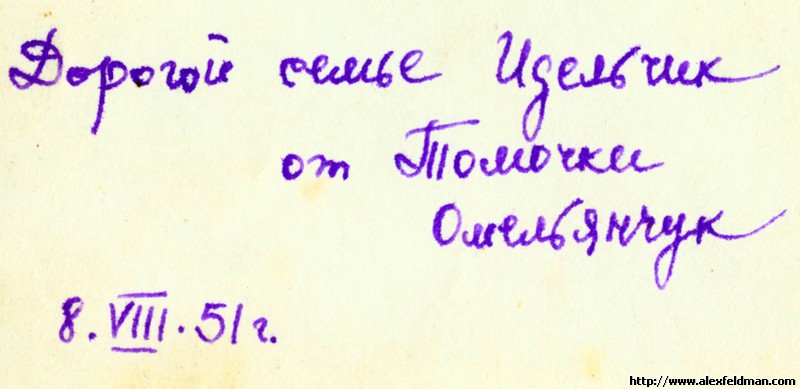 Дорогой семье Идельчик
от Томочки
Омельянчук
8. VIII. 51 г.
http://www.alexfeldman.com